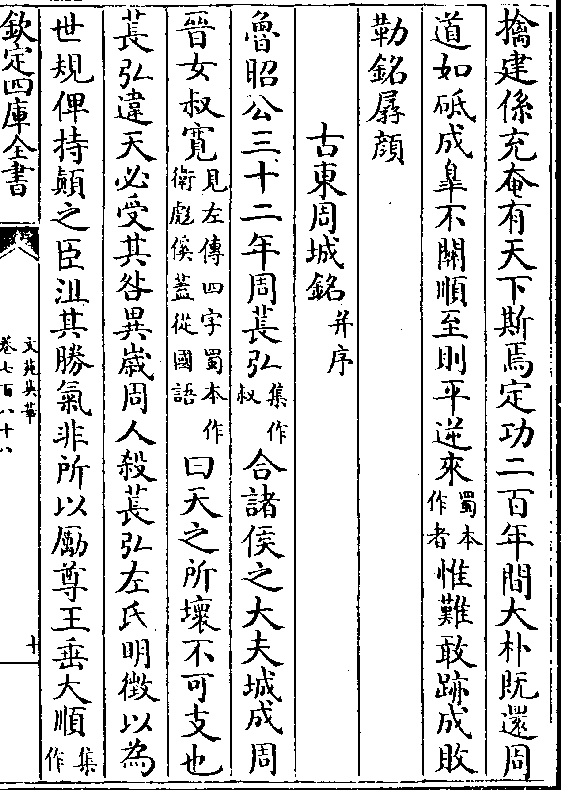 擒建係充奄有天下斯焉定功二百年間大朴既還周
道如砥成臯不關順至則平逆來蜀本作者惟難敢跡成敗
勒銘孱顔
古東周城銘并序
魯昭公三十二年周萇弘集作叔合諸侯之大夫城成周
晉女叔寛見左傳四字蜀本作衛彪傒蓋從國語曰天之所壞不可支也
萇弘違天必受其咎異嵗周人殺萇弘左氏明徴以為
世規俾持顛之臣沮其勝氣非所以勵尊王垂大順集作
欽定四庫全書
文苑英華
卷七百八十八
十